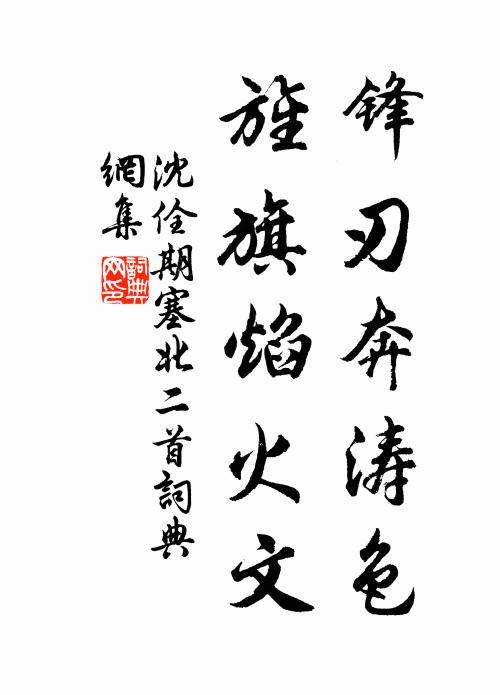 锋刃奔涛色
旌旗焰火文
沈佺期塞北二首詞典
網集
詞典网印